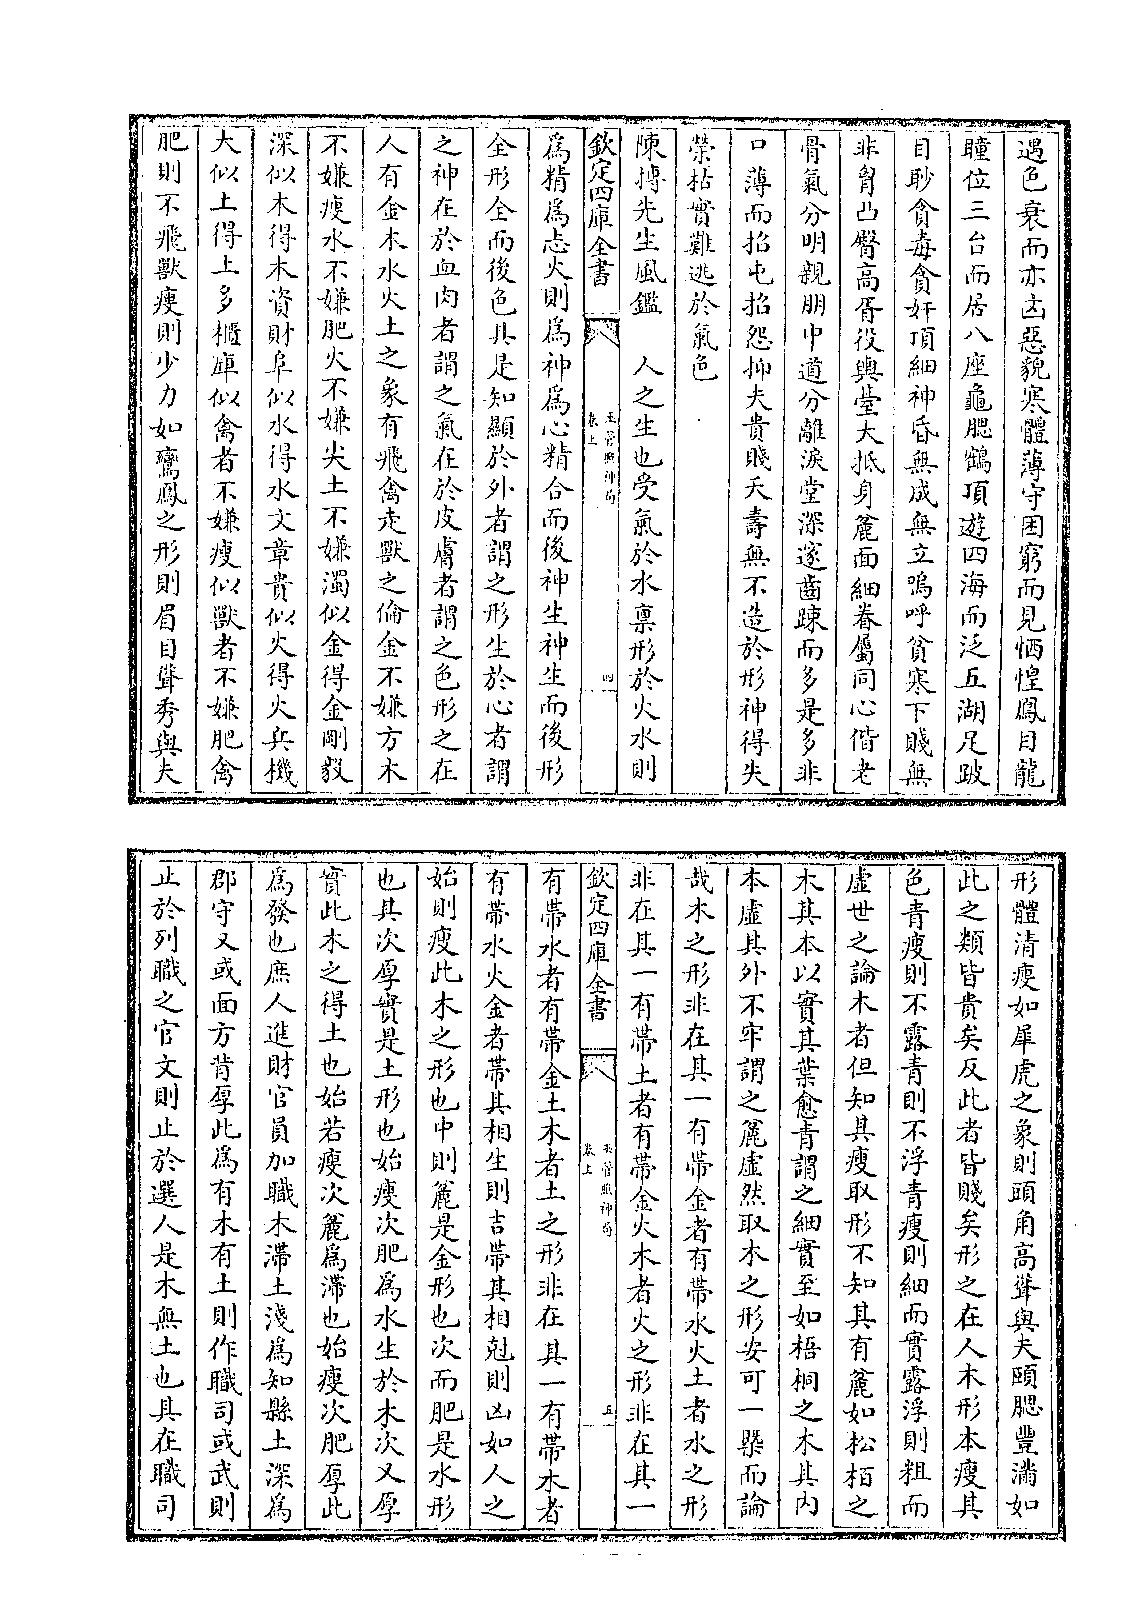 遇色衰而亦凶惡貌寒體薄守困窮而見恓惶鳳目龍
瞳位三台而居八座龜腮鶴頂遊四海而泛五湖足跛
目眇貪毒貪奸項細神昏無成無立嗚呼貧寒下賤無
非胷凸臀高胥役輿臺大抵身麄面細眷屬同心偕老
骨氣分明親朋中道分離淚堂深邃齒踈而多是多非
口薄而招屯招怨抑夫貴賤夭壽無不造於形神得失
榮枯實難逃於氣色
陳摶先生風鑑　人之生也受氣於水稟形於火水則
欽定四庫全書
玉管照神局
卷上
四
為精為志火則為神為心精合而後神生神生而後形
全形全而後色具是知顯於外者謂之形生於心者謂
之神在於血肉者謂之氣在於皮膚者謂之色形之在
人有金木水火土之象有飛禽走獸之倫金不嫌方木
不嫌瘦水不嫌肥火不嫌尖土不嫌濁似金得金剛毅
深似木得木資財阜似水得水文章貴似火得火兵機
大似土得土多櫃庫似禽者不嫌瘦似獸者不嫌肥禽
肥則不飛獸瘦則少力如鸞鳳之形則眉目聳秀與夫
形體清瘦如犀虎之象則頭角高聳與夫頤腮豐滿如
此之類皆貴矣反此者皆賤矣形之在人木形本瘦其
色青瘦則不露青則不浮青瘦則細而實露浮則粗而
虛世之論木者但知其瘦取形不知其有麄如松栢之
木其本以實其葉愈青謂之細實至如梧桐之木其內
本虛其外不牢謂之麄虛然取木之形安可一槩而論
哉木之形非在其一有帶金者有帶水火土者水之形
非在其一有帶土者有帶金火木者火之形非在其一
欽定四庫全書
玉管照神局
卷上
五
有帶水者有帶金土木者土之形非在其一有帶木者
有帶水火金者帶其相生則吉帶其相尅則凶如人之
始則瘦此木之形也中則麄是金形也次而肥是水形
也其次厚實是土形也始瘦次肥為水生於木次又厚
實此木之得土也始若瘦次麄為滯也始瘦次肥厚此
為發也庶人進財官員加職木滯土淺為知縣土深為
郡守又或面方背厚此為有木有土則作職司或武則
止於列職之官文則止於選人是木無土也其在職司